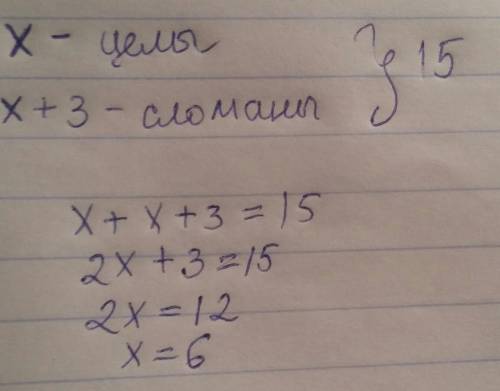 x - целы
x + 3 - сломаны } 15
x + x + 3 = 15
2x + 3 = 15
2x = 12
x = 6